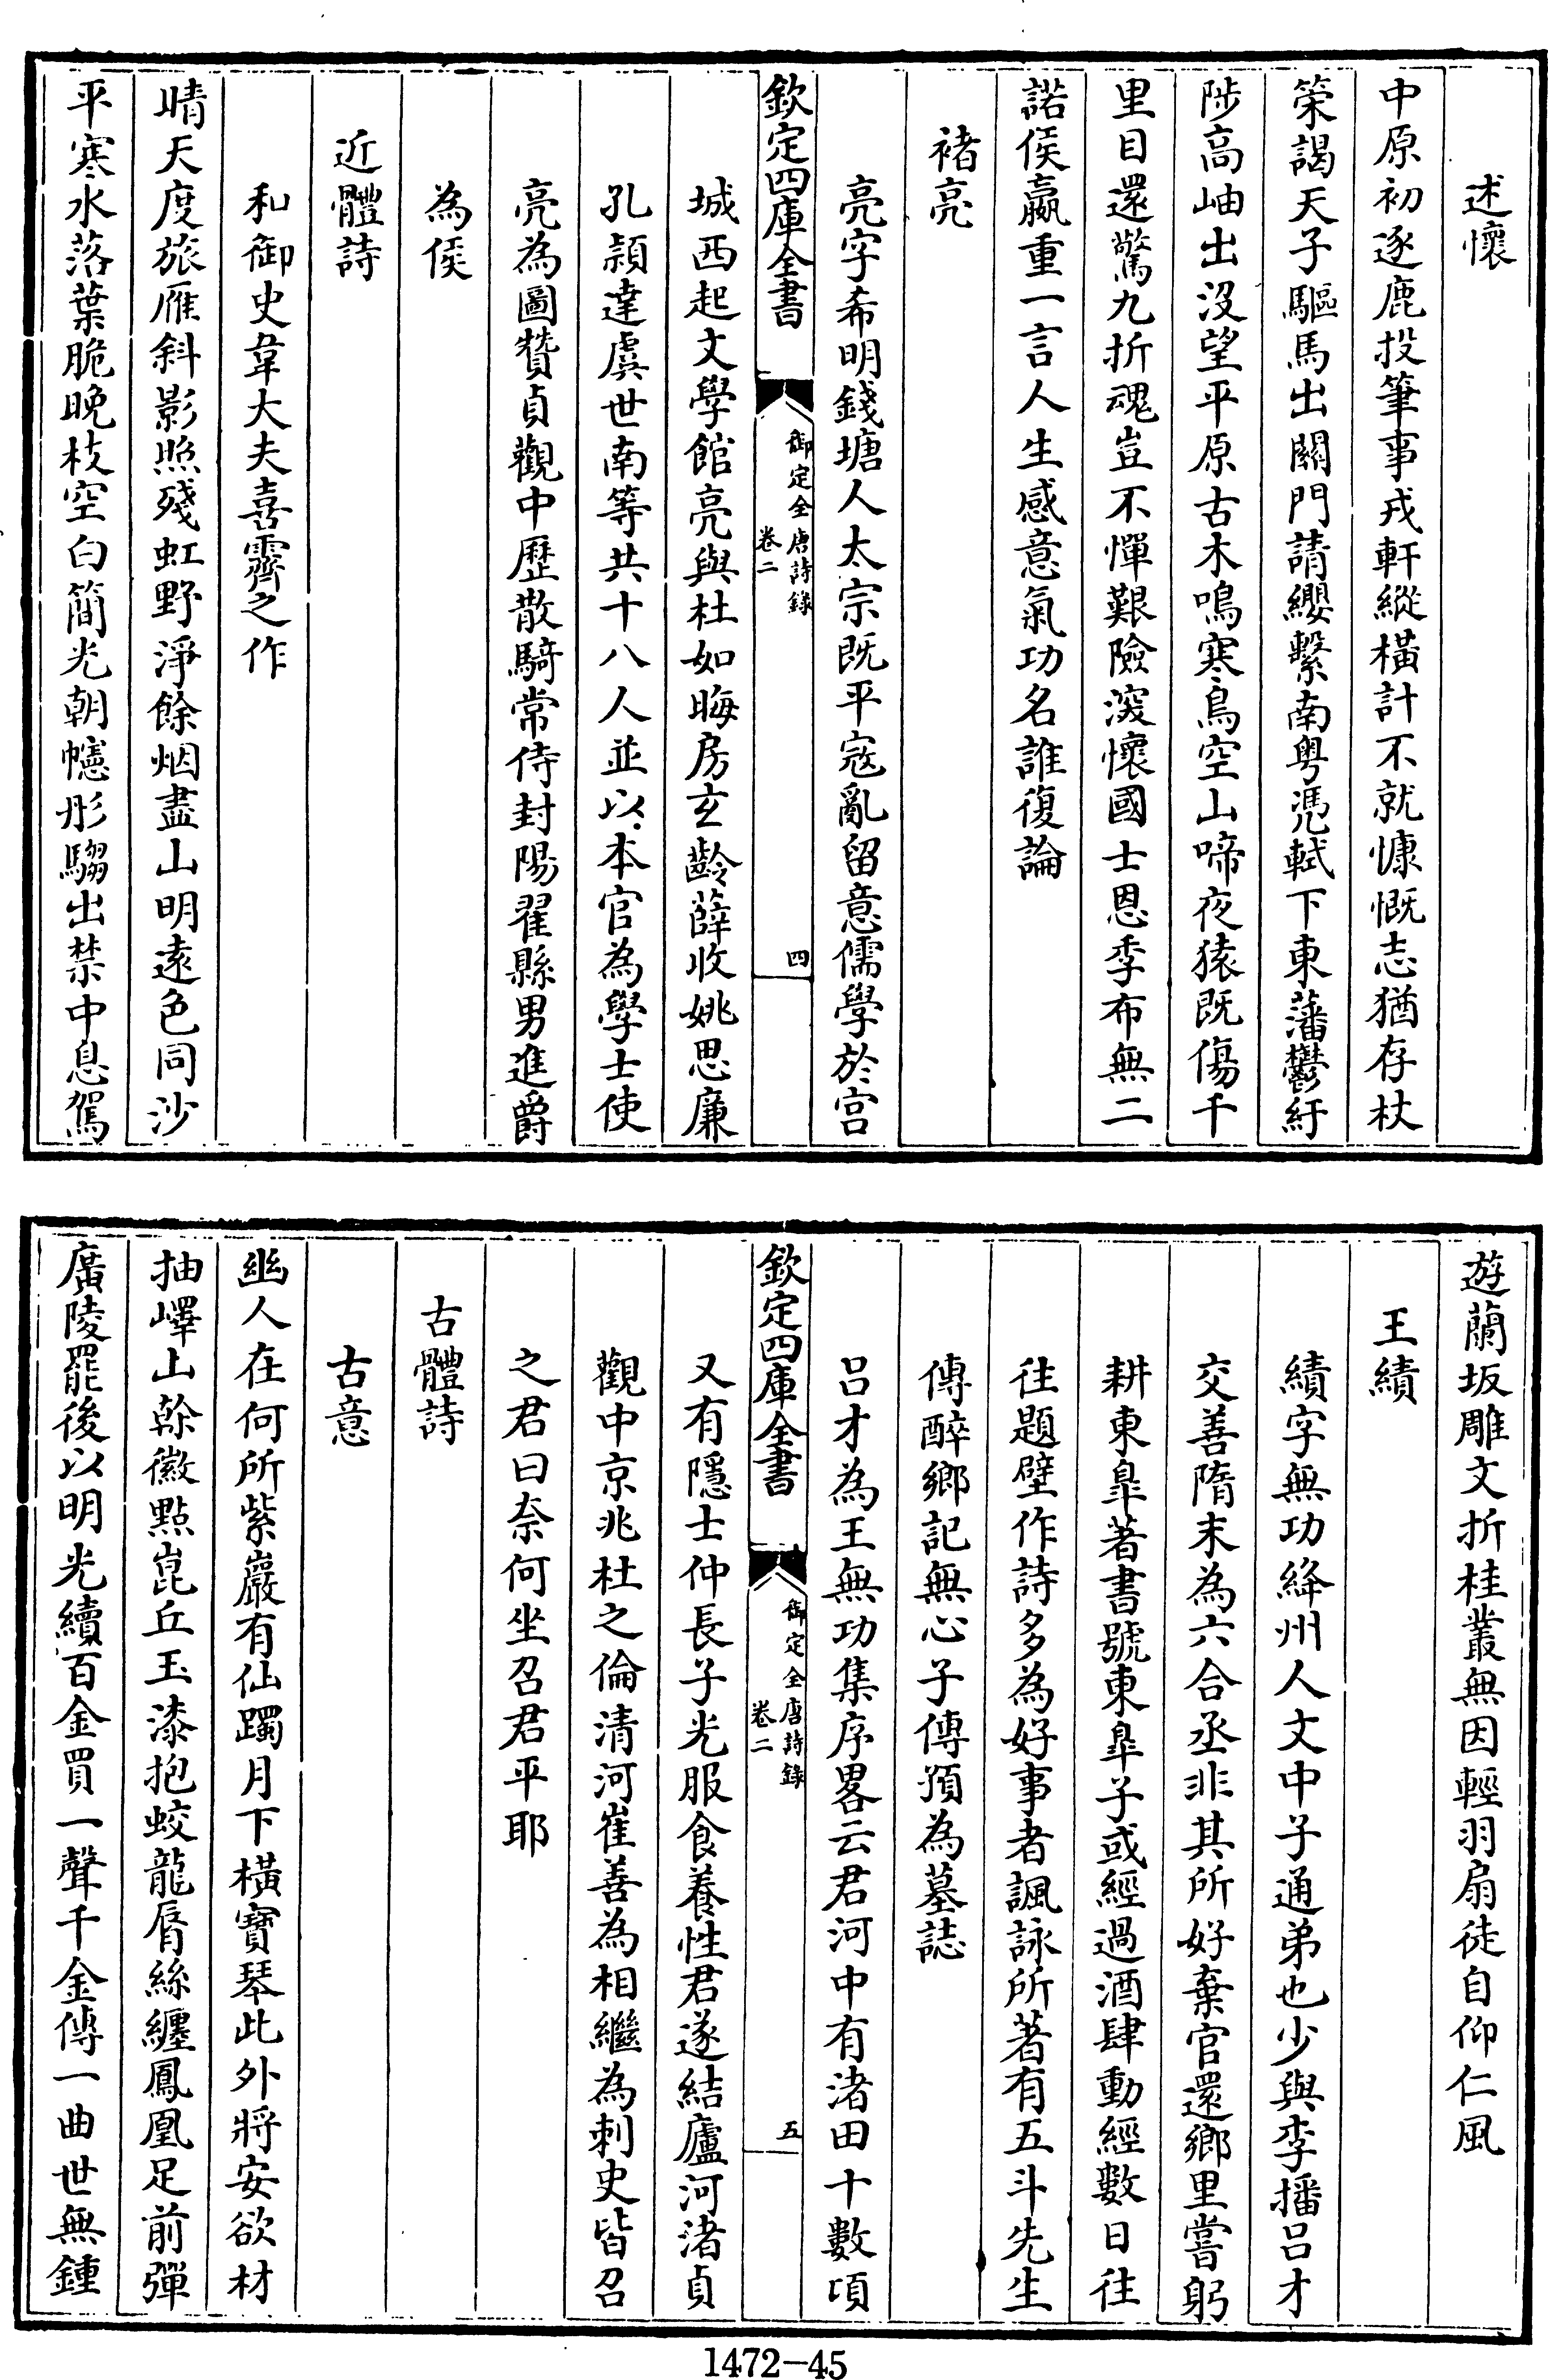 述懷
中原初逐鹿投筆事戎軒縱橫計不就慷慨志猶存杖
策謁天子驅馬出關門請纓繫南粵凴軾下東藩鬱紆
陟高岫出沒望平原古木鳴寒鳥空山啼夜猿既傷千
里目還驚九折魂豈不憚艱險深懷國士恩季布無二
諾侯嬴重一言人生感意氣功名誰復論
褚亮
亮字希明錢塘人太宗既平寇亂留意儒學於宫
欽定四庫全書
御定全唐詩錄
卷二
四
城西起文學館亮與杜如晦房玄齡薛收姚思廉
孔頴達虞世南等共十八人並以本官為學士使
亮為圖贊貞觀中歷散騎常侍封陽翟縣男進爵
為侯
近體詩
和御史韋大夫喜霽之作
晴天度旅雁斜影照殘虹野淨餘烟盡山明遠色同沙
平寒水落葉脆晚枝空白簡光朝幰彤騶出禁中息駕
遊蘭坂雕文折桂叢無因輕羽扇徒自仰仁風
王績
績字無功絳州人文中子通弟也少與李播吕才
交善隋末為六合丞非其所好棄官還鄉里嘗躬
耕東臯著書號東臯子或經過酒肆動經數日往
往題壁作詩多為好事者諷詠所著有五斗先生
傳醉鄉記無心子傳預為墓誌
吕才為王無功集序畧云君河中有渚田十數項
欽定四庫全書
御定全唐詩錄
卷二
五
又有隱士仲長子光服食養性君遂結廬河渚貞
觀中京兆杜之倫清河崔善為相繼為刺史皆召
之君曰奈何坐召君平耶
古體詩
古意
幽人在何所紫巖有仙躅月下橫寶琴此外將安欲材
抽嶧山榦徽點崑丘玉漆抱蛟龍脣絲纏鳳凰足前彈
廣陵罷後以明光續百金買一聲千金傳一曲世無鍾
1472-45